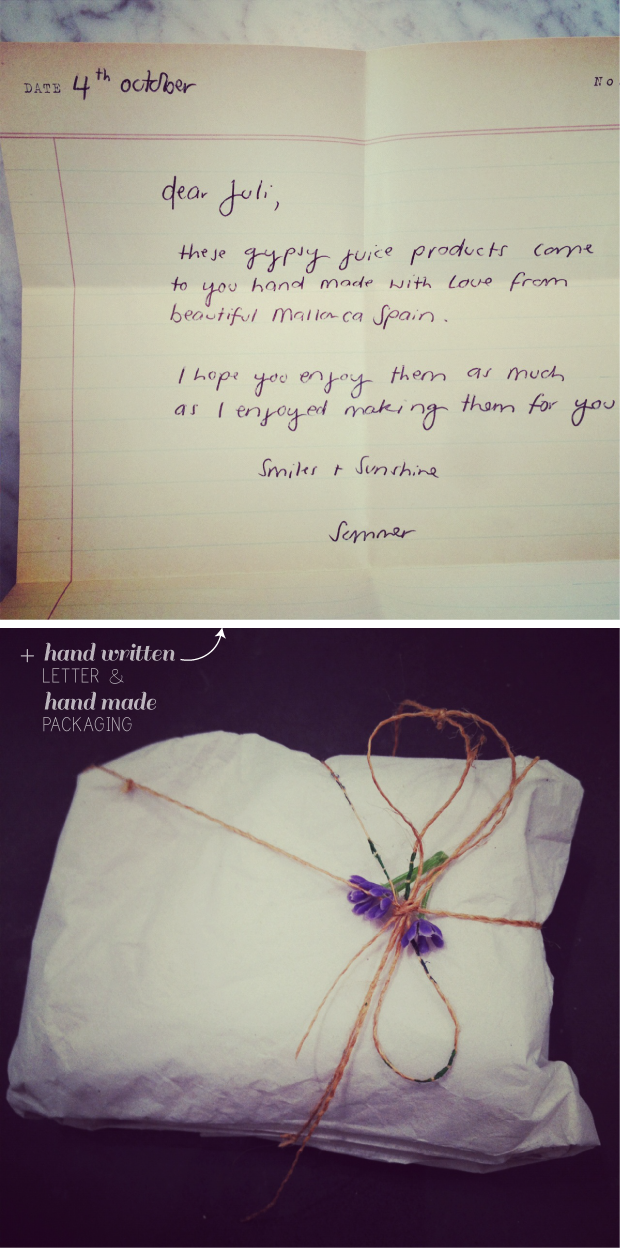 DATE 4th october No
dear Juli,
these gypsy juice products come
to you hand made with love from
beautiful Mallorca Spain.
I hope you enjoy them as much
as I enjoyed making them for you
Smiles + Sunshine
Sommer
+ hand written
LETTER &
hand made
PACKAGING